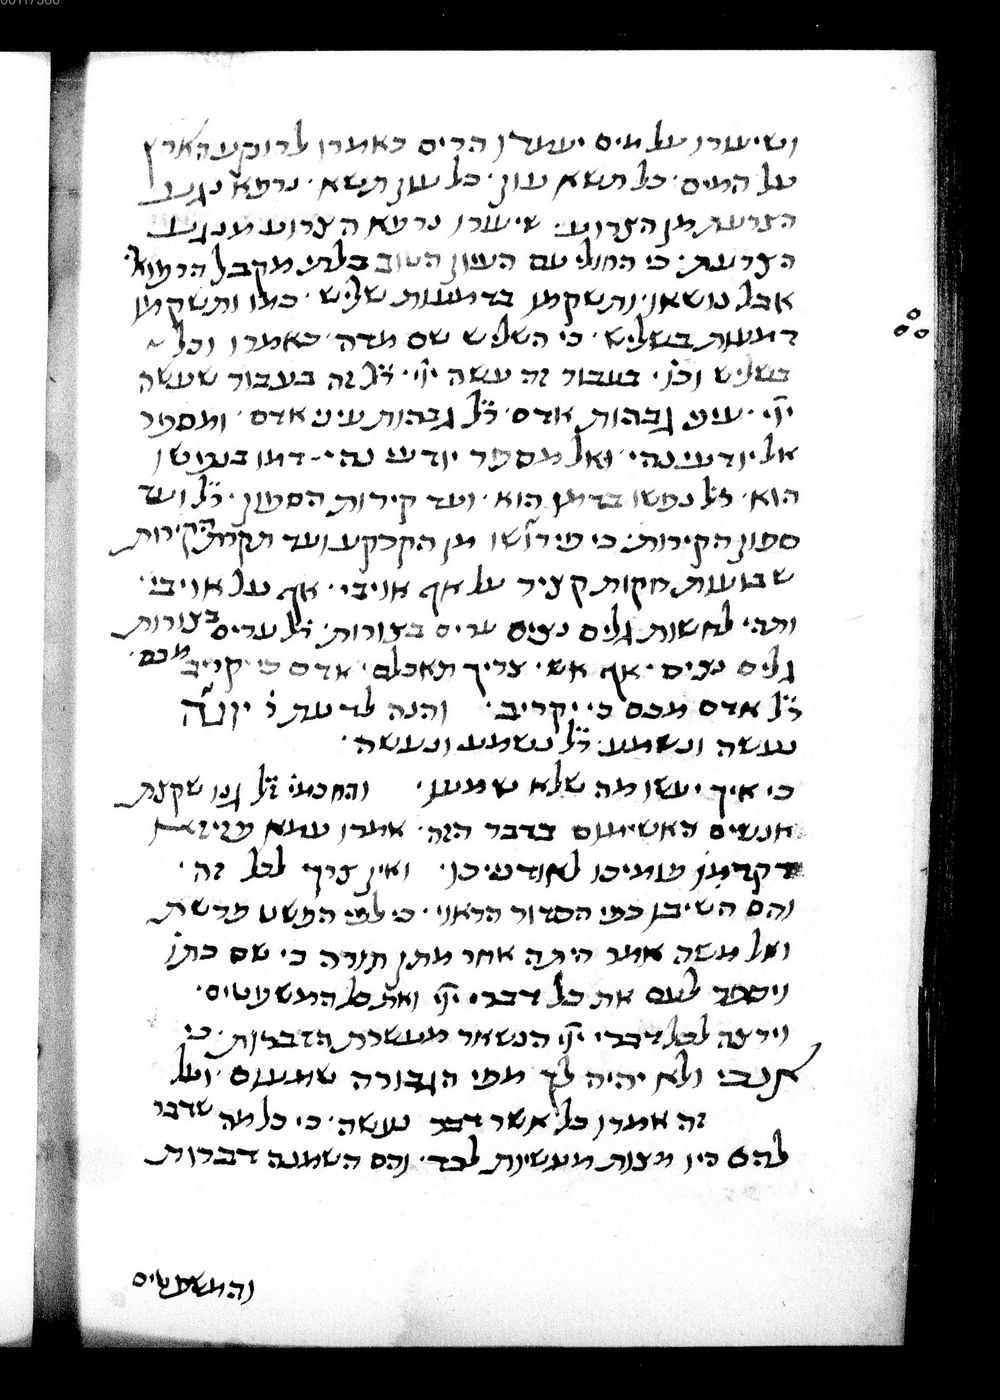 ושיעורו על מים יעמדו הרים כאמרו לרוקע הארץ
על המים. כל תשא עון. כל עון תשא. נרפא נגע
הצרעת מן הצרוע. שיעורו נרפא הצרוע מנגע
הצרעת. כי החולי עם העיון הטוב בלתי מקבל הרפוא.
אבל נושאו. ותשקמו בדמעות שליש. כמו ותשקמו
דמעות בשליש. כי השליש שם מדה. כאמרו וכל
בשליש וכו'. בעבור זה עשה ייי. ר"ל זה בעבור שעשה
ייי. עיני גבהות אדם. ר"ל גבהות עיני אדם. ומספיר
אל יודעי נהי. ואל מספד יודעי נהי. דמו בנפשו
הוא. ר"ל נפשו בדמו הוא. ועד קירות הספון. ר"ל ועד
ספון הקירות. כי פירושו מן הקרקע ועד תקרת הקירות
שבועות חקות קציר על אף אויבי. אף על אויבי.
ותהי להשות גלים נצים ערים בצורות. ר"ל ערים בצורות
גלים נצים. אף אש. צריך תאכלם. אדם כי יקריב מכם.
ר"ל אדם מכם כי יקריב. והנה לדעת ר' יונה
נעשה ונשמע. ר"ל נשמע ונעשה.
כי איך יעשו מה שלא שמעו. והחכמי' ז"ל גנו שקצת
אנשים האשימום בדבר הזה. אמרו עמא פזיזא
דקדמו פומיכו לאודניכו. ואין צריך לכל זה.
והם השיבו כפי הסדור הראוי. כי לפי הפשט פרשת
ואל משה אמר היתה אחר מתן תורה כי שם כתו'
ויספר לעם את כל דברי ייי ואת כל המשפטים.
וירצה לכל דברי ייי הנשאר מעשרת הדברות. כי
אנכי ולא יהיה לך מפי הגבורה שמעום. ועל
זה אמרו כל אשר דבר נעשה. כי כל מה שדבר
להם היו מצות מעשיות לבד. והם השמנה דברות
והמשפטים